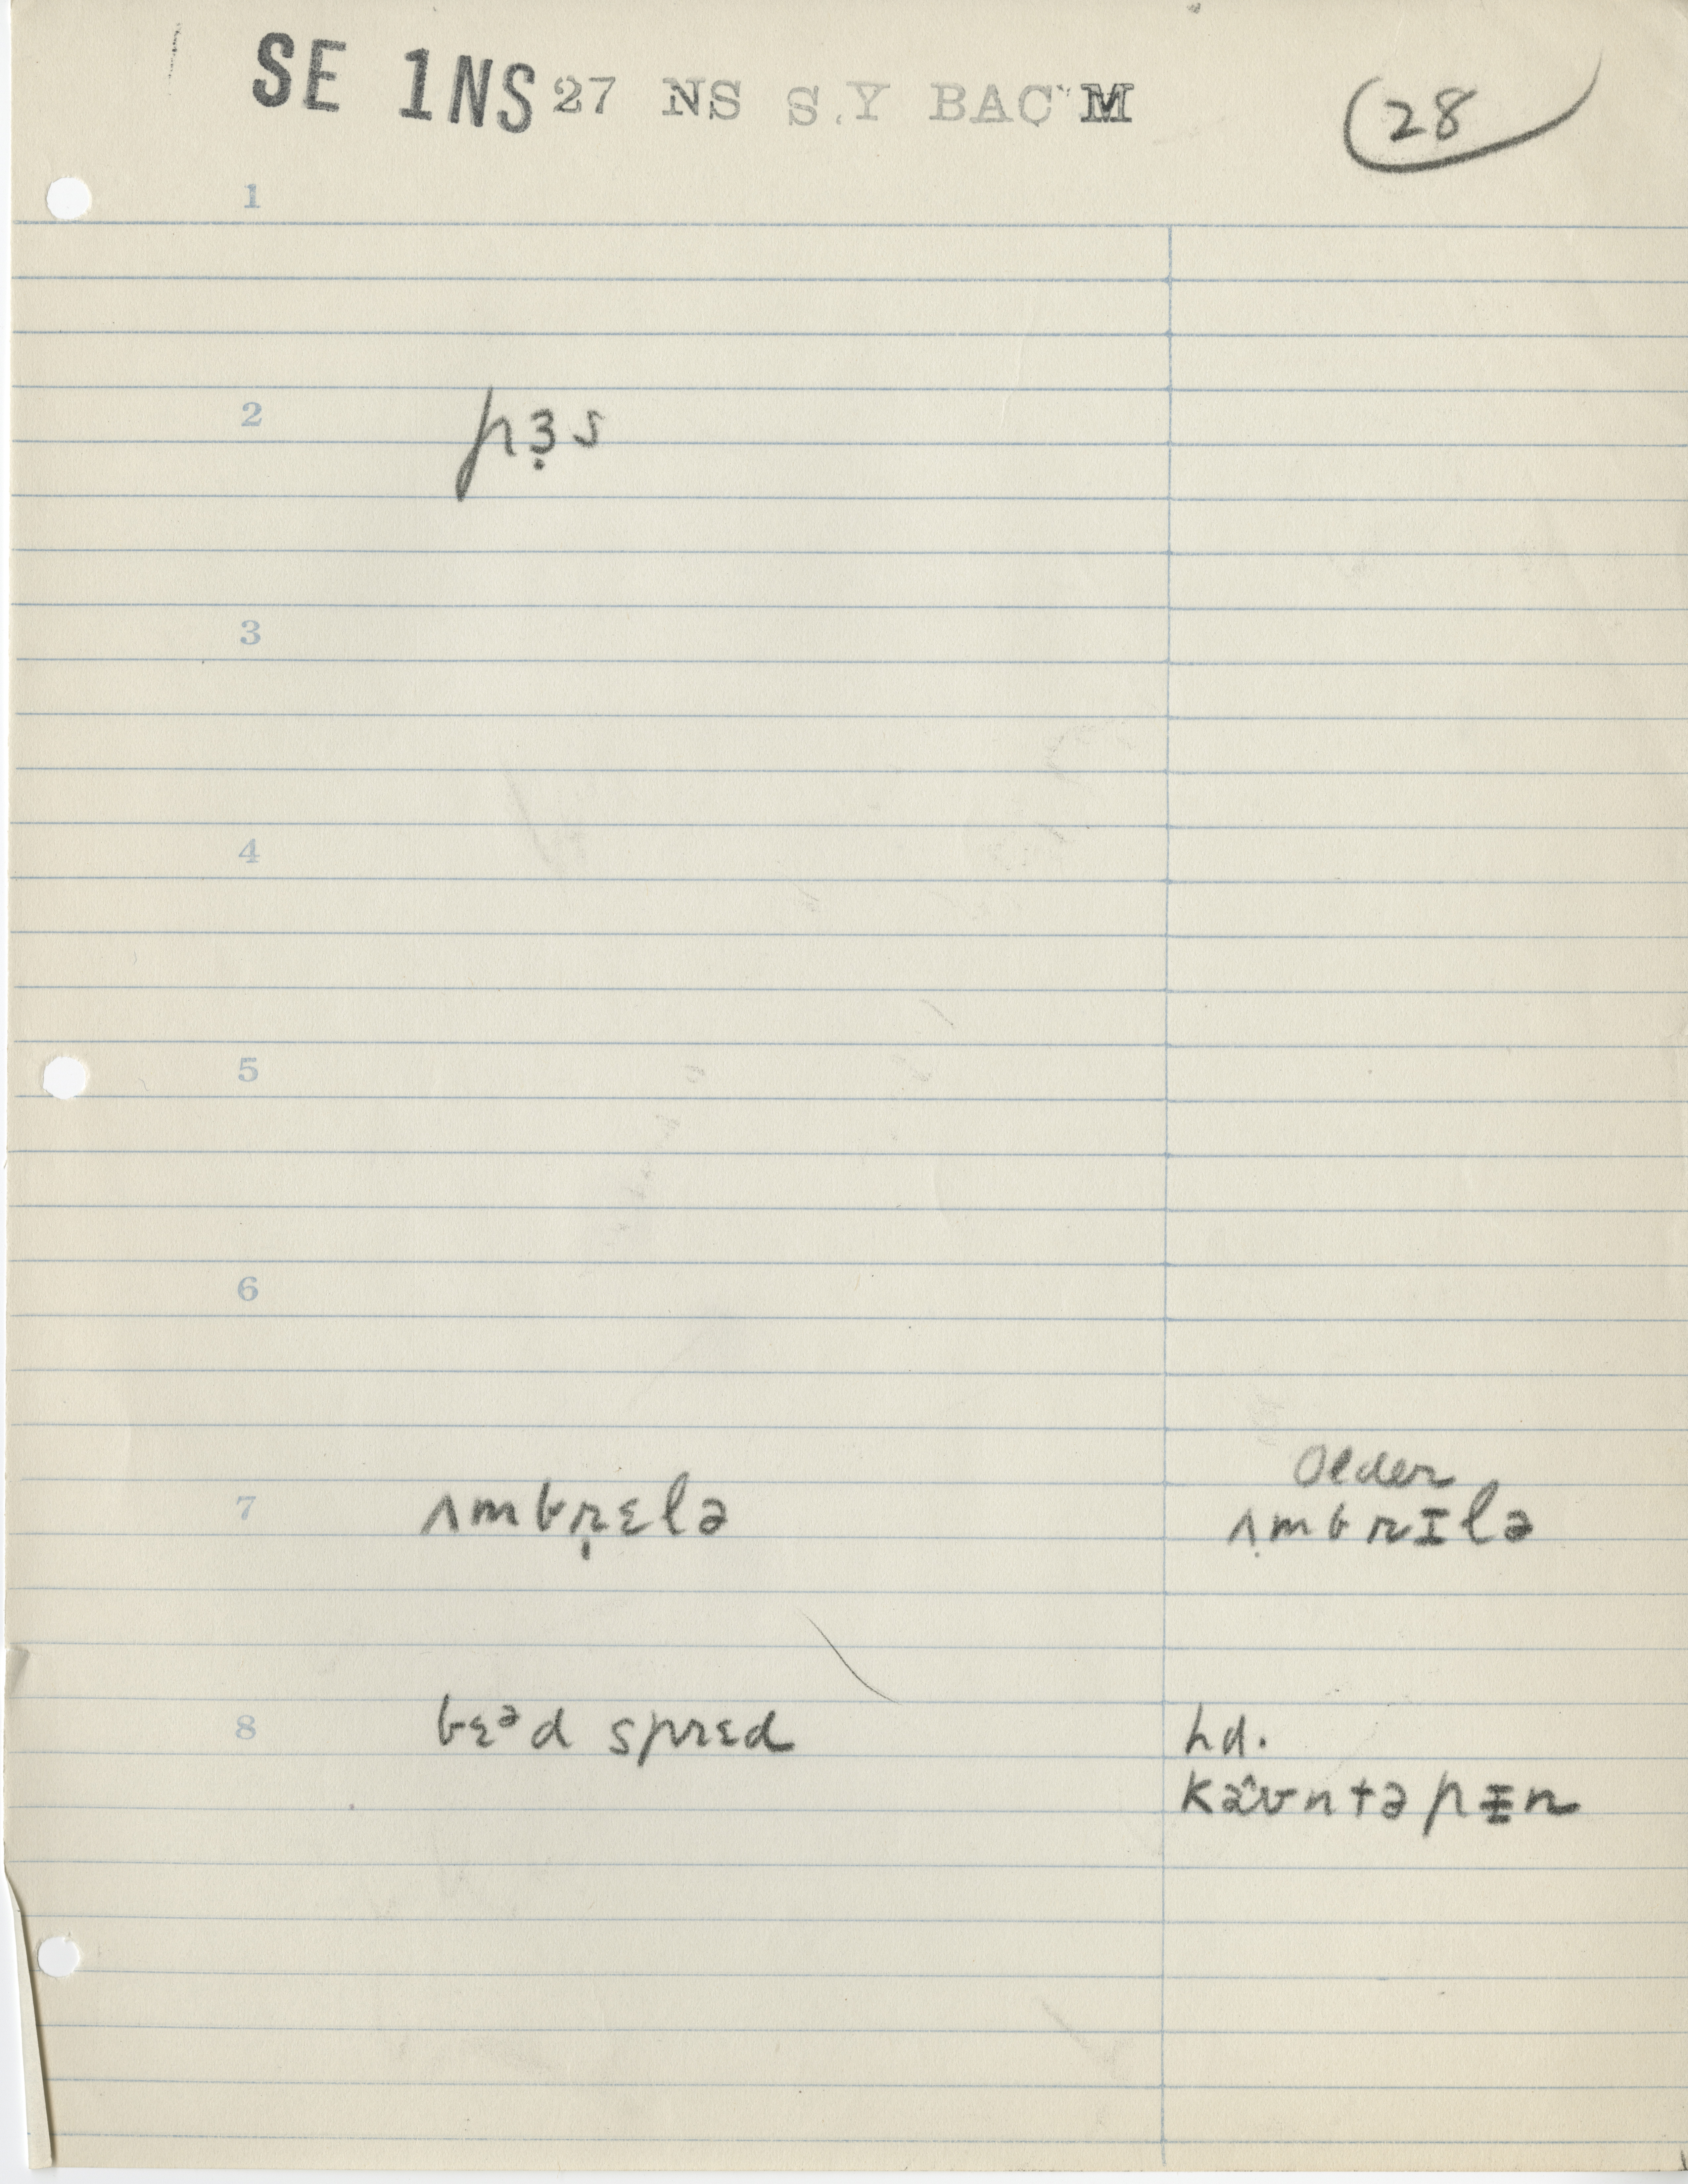 SE 1NS 27 NS S.Y BAC M
28
1
2 pɜ̣s
3
4
5
6
Older
7 ʌmbrɛlə ʌmbrɪlə
8 bɛᵊd sprɛd hd.
kaʊntəpɪn